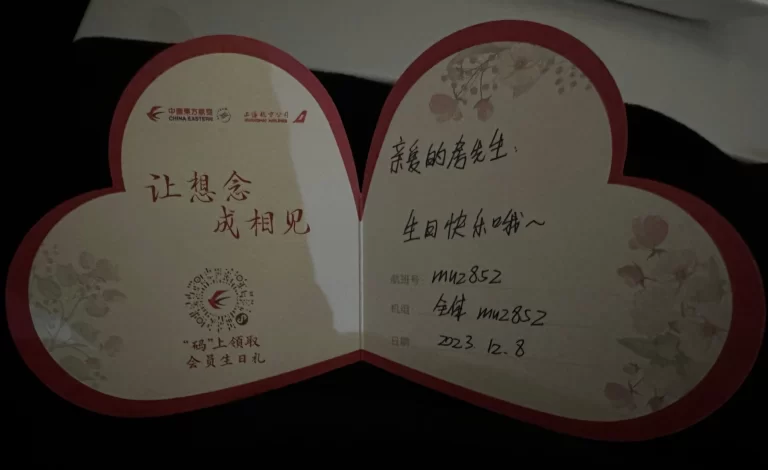 中國東方航空
CHINA EASTERN
上海航空公司
SHANGHAI AIRLINES
让想念
成相见
“码”上领取
会员生日礼
亲爱的房先生：
生日快乐哦～
航班号 mu2852
机组 全体 mu2852
日期 2023.12.8